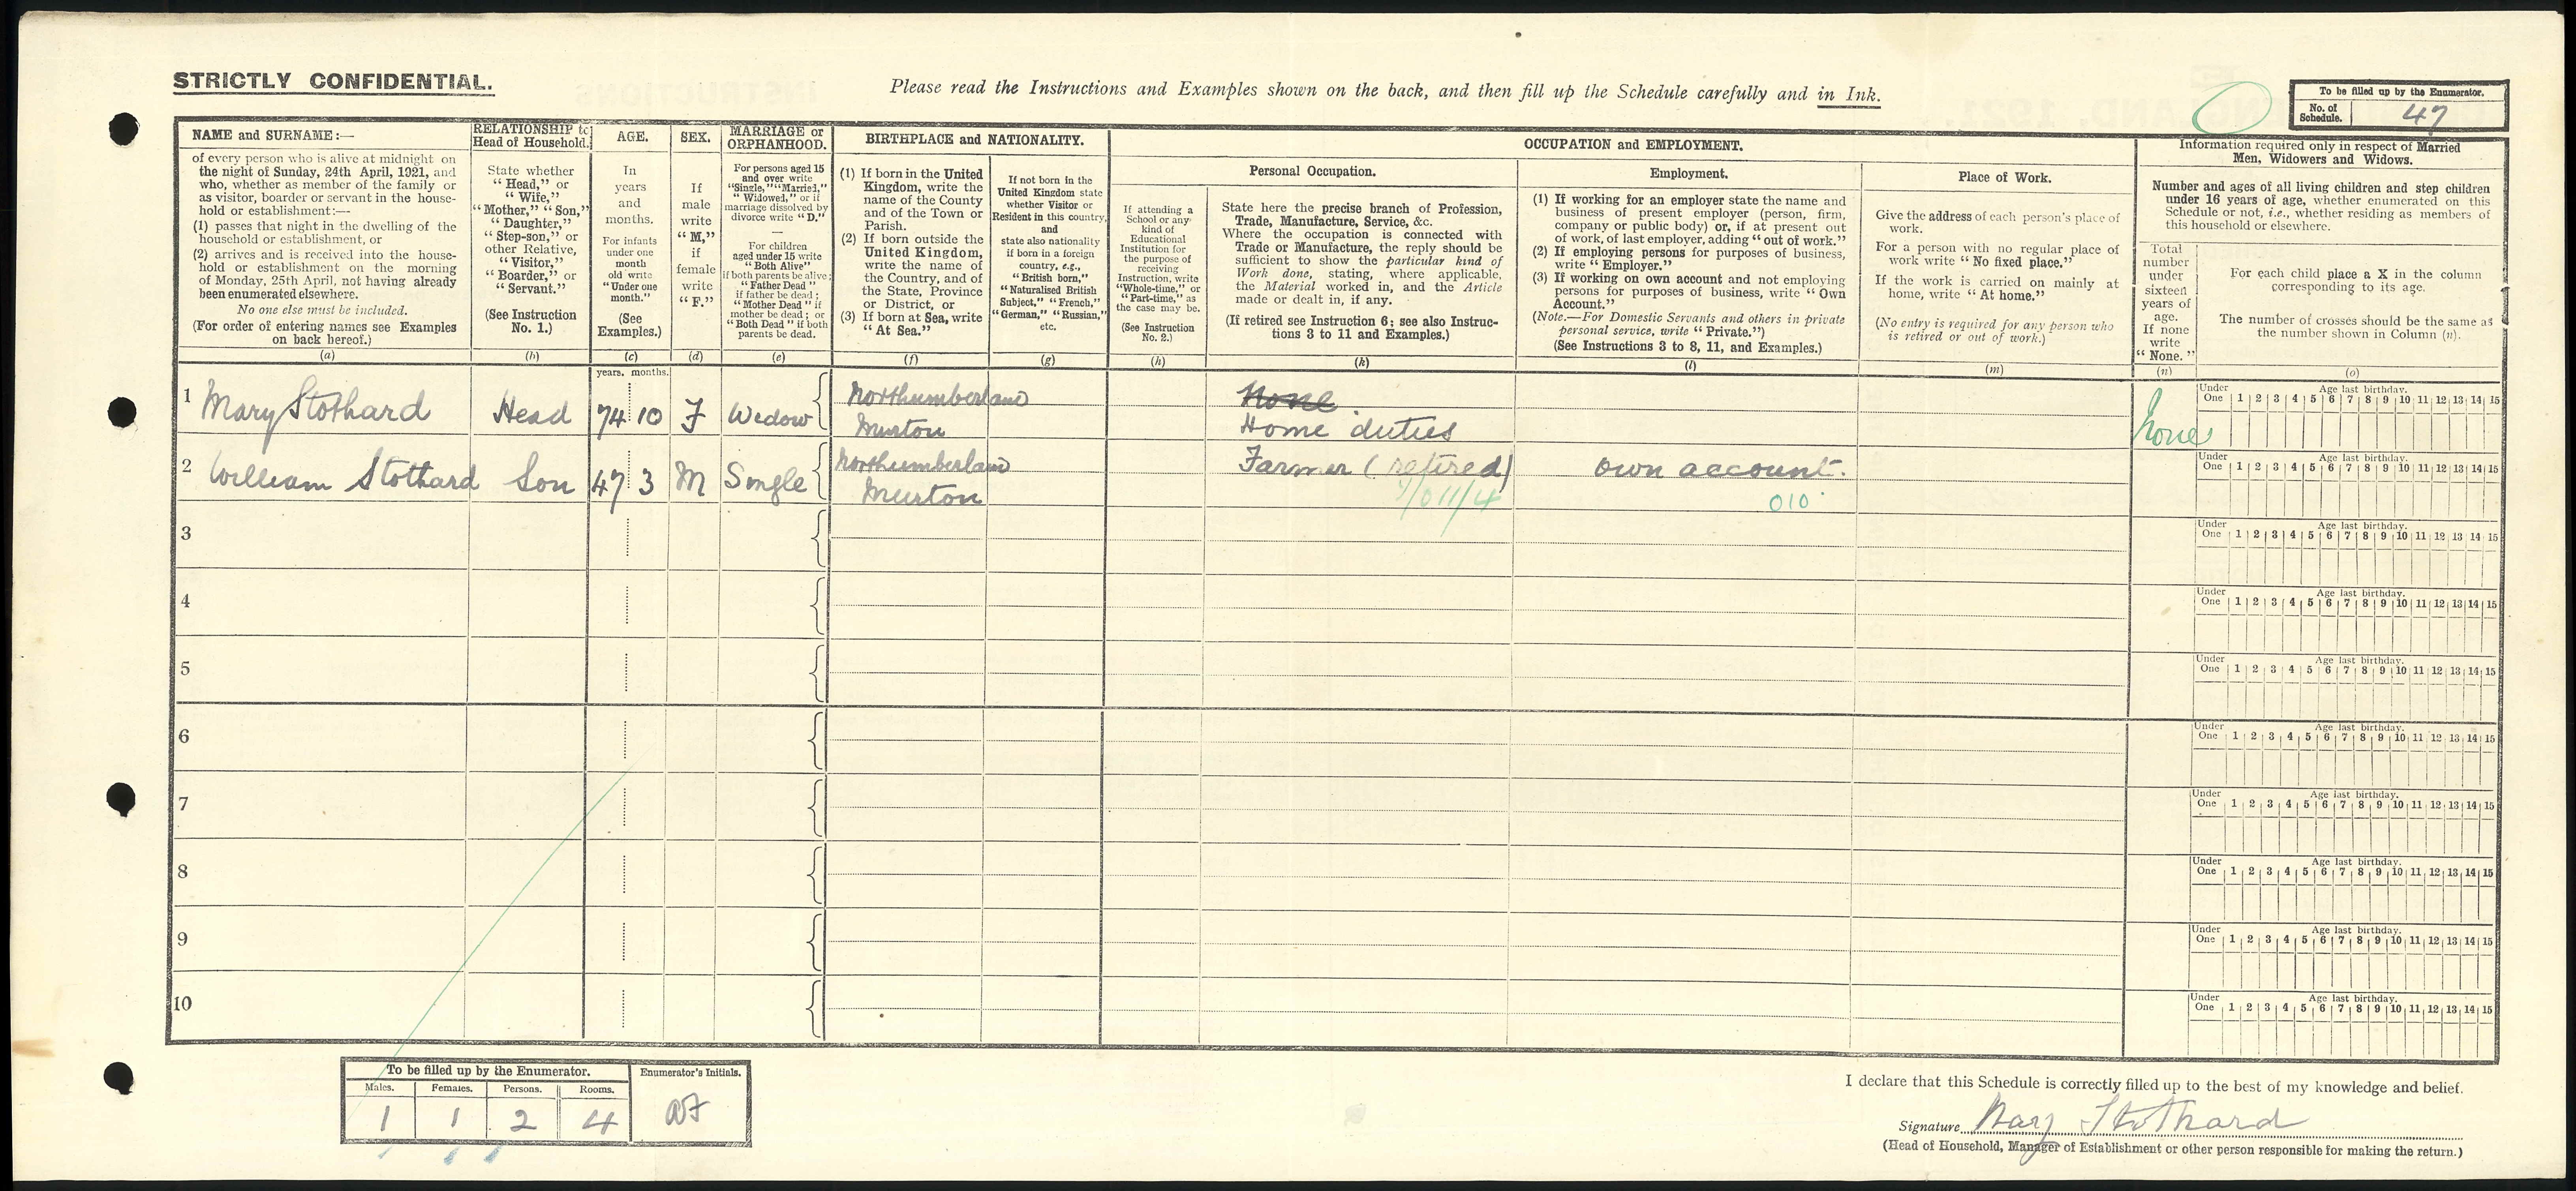 STRICTLY CONFIDENTIAL.
Please read the Instructions and Examples shown on the back, and then fill up the Schedule carefully and in Ink.
To be filled up by the Enumerator.
No. of Schedule. 47
NAME and SURNAME:—
of every person who is alive at midnight on
the night of Sunday, 24th April, 1921, and
who, whether as member of the family or
as visitor, boarder or servant in the house-
hold or establishment:—
(1) passes that night in the dwelling of the
household or establishment, or
(2) arrives and is received into the house-
hold or establishment on the morning
of Monday, 25th April, not having already
been enumerated elsewhere.
No one else must be included.
(For order of entering names see Examples
on back hereof.)
(a)
RELATIONSHIP to
Head of Household.
State whether
"Head," or
"Wife,"
"Mother," "Son,"
"Daughter,"
"Step-son," or
other Relative,
"Visitor,"
"Boarder," or
"Servant."
(See Instruction
No. 1.)
(b)
AGE.
In
years
and
months.
For infants
under one
month
old write
"Under one
month."
(See
Examples.)
(c)
SEX.
If
male
write
"M,"
if
female
write
"F."
(d)
MARRIAGE or
ORPHANHOOD.
For persons aged 15
and over write
"Single," "Married,"
"Widowed," or if
marriage dissolved by
divorce write "D."
—
For children
aged under 15 write
"Both Alive"
if both parents be alive;
"Father Dead"
if father be dead;
"Mother Dead" if
mother be dead; or
"Both Dead" if both
parents be dead.
(e)
BIRTHPLACE and NATIONALITY.
(1) If born in the United
Kingdom, write the
name of the County
and of the Town or
Parish.
(2) If born outside the
United Kingdom,
write the name of
the Country, and of
the State, Province
or District, or
(3) If born at Sea, write
"At Sea."
(f)
If not born in the
United Kingdom state
whether Visitor or
Resident in this country,
and
state also nationality
if born in a foreign
country, e.g.,
"British born,"
"Naturalised British
Subject," "French,"
"German," "Russian,"
etc.
(g)
OCCUPATION and EMPLOYMENT.
If attending a
School or any
kind of
Educational
Institution for
the purpose of
receiving
Instruction, write
"Whole-time," or
"Part-time," as
the case may be.
(See Instruction
No. 2.)
(h)
Personal Occupation.
State here the precise branch of Profession,
Trade, Manufacture, Service, &c.
Where the occupation is connected with
Trade or Manufacture, the reply should be
sufficient to show the particular kind of
Work done, stating, where applicable,
the Material worked in, and the Article
made or dealt in, if any.
(If retired see Instruction 6; see also Instruc-
tions 3 to 11 and Examples.)
(k)
Employment.
(1) If working for an employer state the name and
business of present employer (person, firm,
company or public body) or, if at present out
of work, of last employer, adding "out of work."
(2) If employing persons for purposes of business,
write "Employer."
(3) If working on own account and not employing
persons for purposes of business, write "Own
Account."
(Note.—For Domestic Servants and others in private
personal service, write "Private.")
(See Instructions 3 to 8, 11, and Examples.)
(l)
Place of Work.
Give the address of each person's place of
work.
For a person with no regular place of
work write "No fixed place."
If the work is carried on mainly at
home, write "At home."
(No entry is required for any person who
is retired or out of work.)
(m)
Information required only in respect of Married
Men, Widowers and Widows.
Number and ages of all living children and step children
under 16 years of age, whether enumerated on this
Schedule or not, i.e., whether residing as members of
this household or elsewhere.
Total
number
under
sixteen
years of
age.
If none
write
"None."
(n)
For each child place a X in the column
corresponding to its age.
The number of crosses should be the same as
the number shown in Column (n).
(o)
years. months.
1 Mary Stothard Head 74 10 F Widow Northumberland None
Murton Home duties None
Under One Age last birthday. 1 2 3 4 5 6 7 8 9 10 11 12 13 14 15
2 William Stothard Son 47 3 M Single Northumberland Farmer (retired) Own account.
Murton 010
Under One Age last birthday. 1 2 3 4 5 6 7 8 9 10 11 12 13 14 15
3
Under One Age last birthday. 1 2 3 4 5 6 7 8 9 10 11 12 13 14 15
4
Under One Age last birthday. 1 2 3 4 5 6 7 8 9 10 11 12 13 14 15
5
Under One Age last birthday. 1 2 3 4 5 6 7 8 9 10 11 12 13 14 15
6
Under One Age last birthday. 1 2 3 4 5 6 7 8 9 10 11 12 13 14 15
7
Under One Age last birthday. 1 2 3 4 5 6 7 8 9 10 11 12 13 14 15
8
Under One Age last birthday. 1 2 3 4 5 6 7 8 9 10 11 12 13 14 15
9
Under One Age last birthday. 1 2 3 4 5 6 7 8 9 10 11 12 13 14 15
10
Under One Age last birthday. 1 2 3 4 5 6 7 8 9 10 11 12 13 14 15
To be filled up by the Enumerator.
Males. Females. Persons. Rooms.
1 1 2 4
Enumerator's Initials.
I declare that this Schedule is correctly filled up to the best of my knowledge and belief.
Signature Mary Stothard
(Head of Household, Manager of Establishment or other person responsible for making the return.)